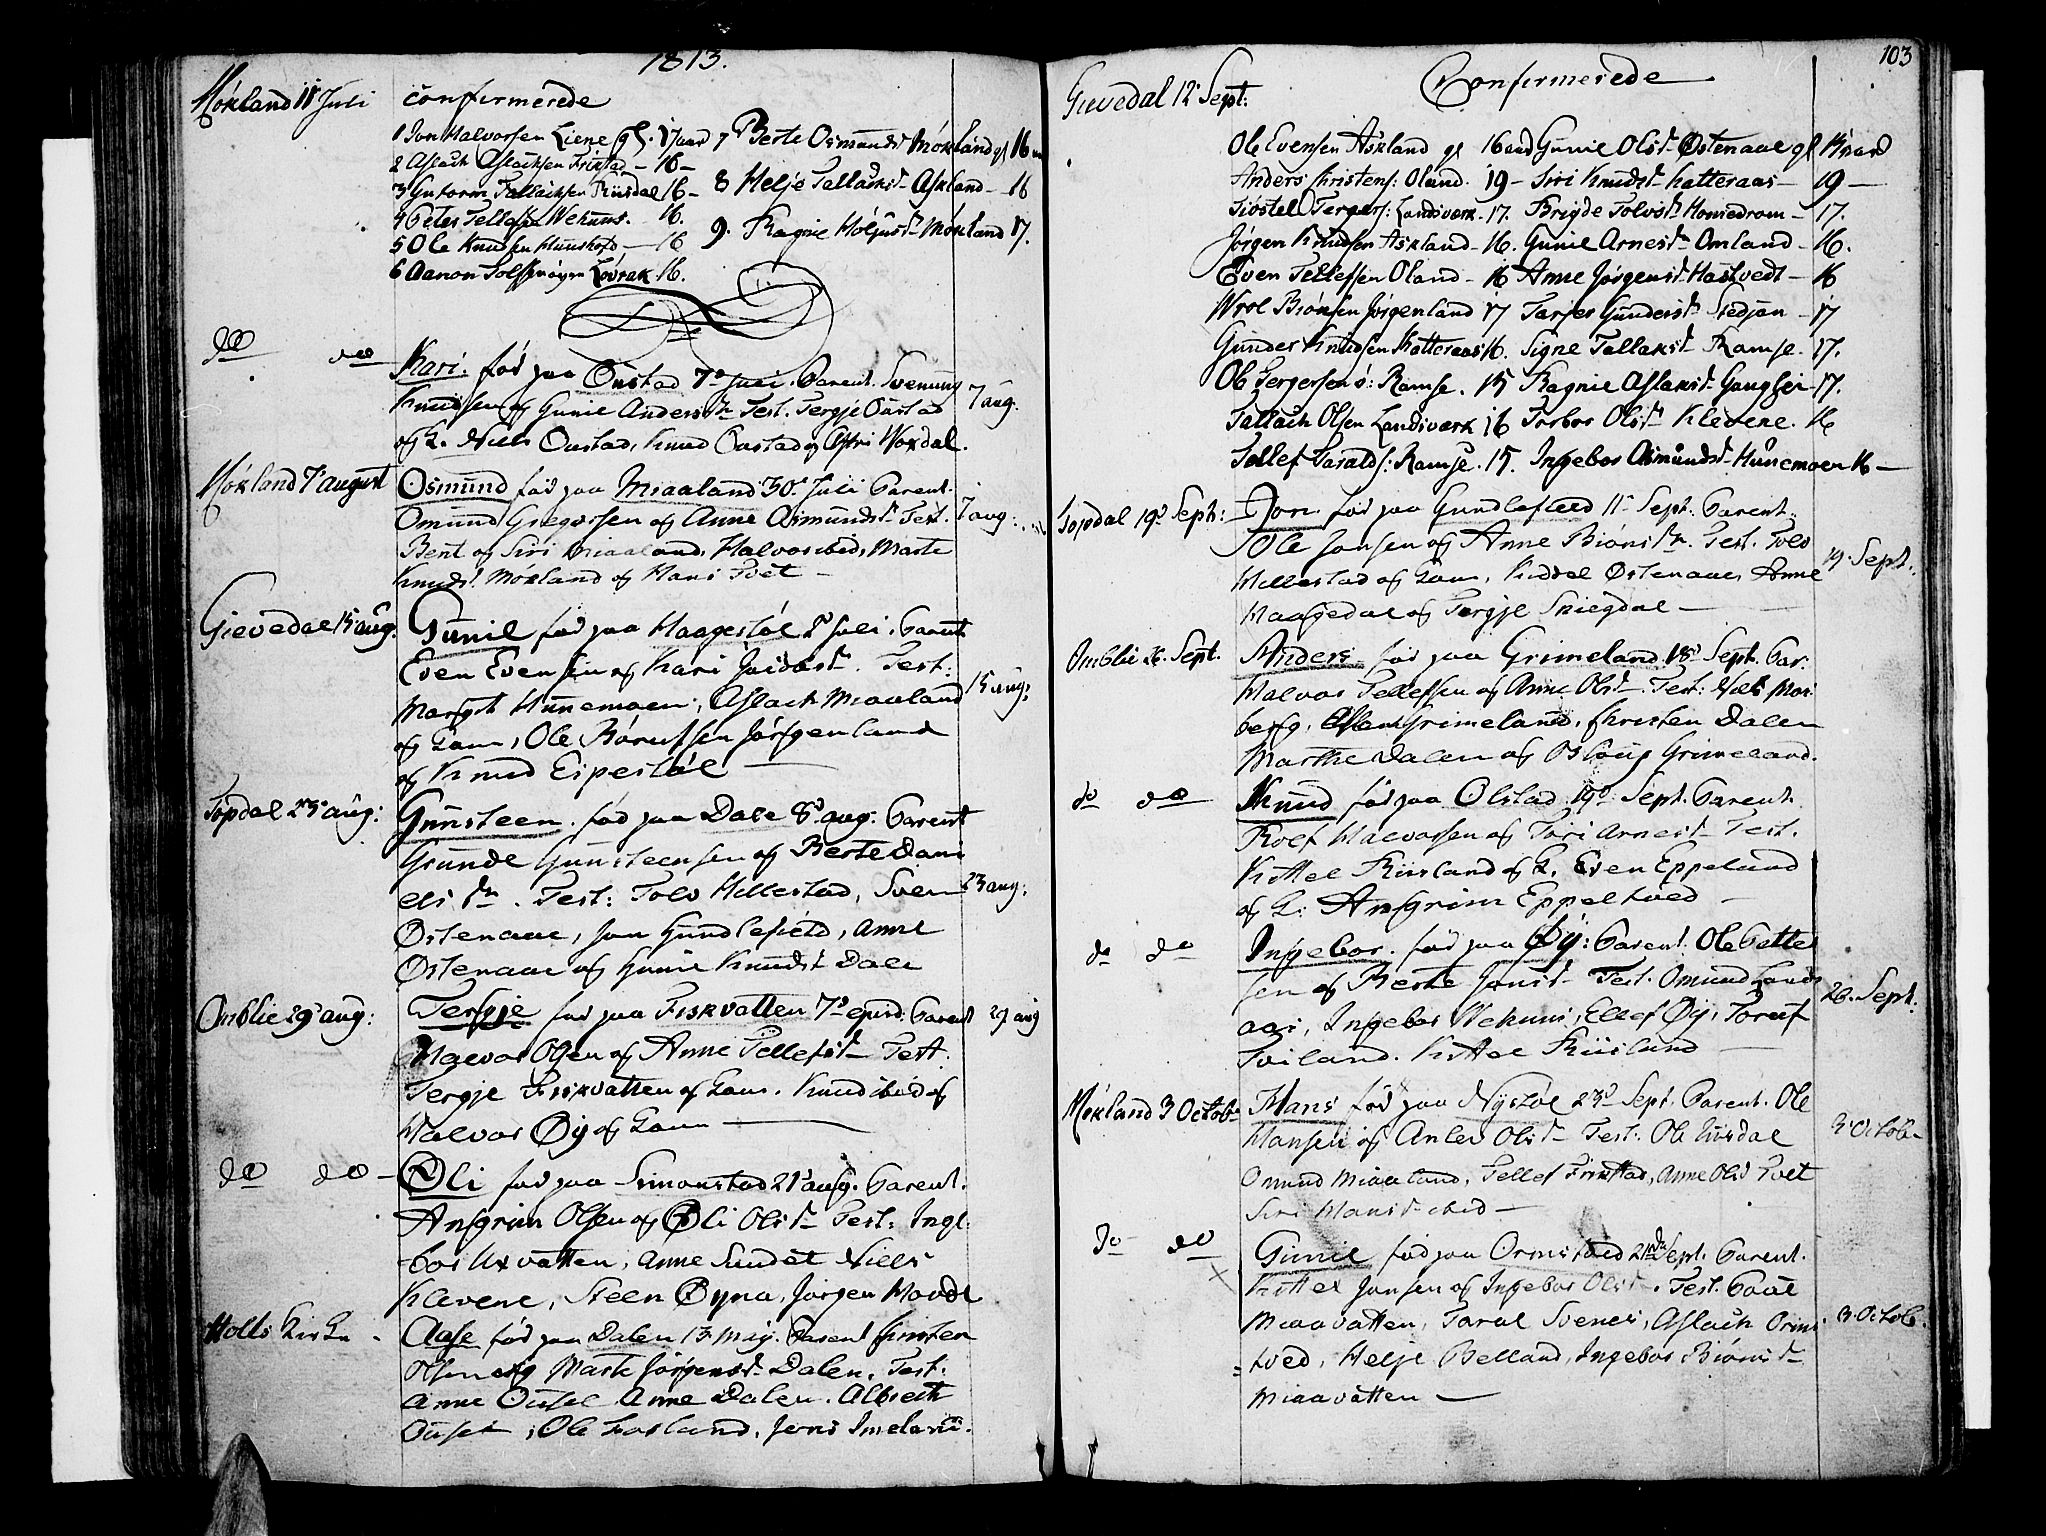 1813.
Mókland 11 Juli confirmerede
1 Jon Halvorsen Liene gl. 17 aar 7 Berte Osmunds Mókland gl 16
2 Aslach Aslachsen Fristad - 16 -
3 Gutorm Tallachsen Riisdal 16 - 8 Helje Tallaksd Askland - 16
4 Peter Tellefs Wehuus. 16.
5 Ole Knudsen - 16 9. Ragnie Mókland 17.
6 Aanon Lóvrak 16.
do do Kari. fód paa Oustad 7de Juli. Parent. Svenung
Knudsen og Gunie Andersdr Test. Tergje Oustad 7 aug.
og K. Niels Oustad, Knud Oustad og Asri Woxdal.
Mókland 7de august Osmund fód paa Miaaland 30de Juli Parent.
Omund Gregersen og Anne Osmundsd Test. 7 aug:
Bent og Siri Miaaland, Halvor ibid, Marte
Knudsd. Mókland og Hans Tvet -
Gievedal 15 aug. Gunil fód paa Haagestól 2d Juli. Parent
Even Evensen og Kari Test:
Margit Hunemoen, Aslach Miaaland 15 aug:
og Kone, Ole Jórgenland
og Knud Eipestól -
Topdal 23de aug: Gunsteen. fód paa Dale 8d aug: Parent
Grunde Gunsteensen og Berte Dani
elsdr. Test: Tolv Hillestad, Sven 23 aug:
Østenaae, Jon Gundlefield, Anne
Østenaae og Gunie Knudsd Dale
Omblie 29de aug: Tergje fód paa Fiskvatten 7de Parent 29 aug
Halvor Olsen og Anne Tellefsd - Test.
Tergje Fiskvatten og Kone. Knud ibid og
Halvor Øy og Kone -
do do - Oli fód paa Simonstad 21d aug. Parent.
Ansgrim Olsen og Oli Olsd - Test: Inge
bor Uxvatten, Anne Sundet Niels
Klevene, Steen Øyna, Jorgen Hovde
Holts Kirke. Aase fód paa Dalen 13 May. Parent Christen
Olsen og Marte Jórgensd. Dalen. Test:
Anne Ousel Anne Dalen. Albrect
Ousel, Ole Fosland, Jens Imeland.
103
Gievedal 12 Sept: Confirmerede
Ole Evensen Askland gl 16 aar Gunie Olsd Østenaae gl 15 aar
Anders Christens: Oland. 19 - Siri Knudsd Katteraas - 19 -
Tergers: Landsværk. 17. Brigde Tolvsd Homedrom - 17.
Jórgen Knudsen Askland - 16. Gunie Arnesd Omland - 16.
Even Tellefsen Oland - 16 Anne Jórgensd Hastvedt - 16
Wrol Biónsen Jórgenland 17 Tarjer Gundersd Stedjan - 17
Gunder Knudsen Katteraas 16. Signe Tallaksd Ramse. 17.
Ole Tergersen ó: Ramse. 15 Ragnie Aslaksd Gangsei - 17.
Tallach Olsen Landsværk 16 Torbor Olsd Klevene. 16
Tellef Taralds: Ramse. 15. Ingebor Osmundsd Hunemoen 16 -
Topdal 19d Sept: Jon fód paa Gundlefield 11d Sept: Parent:
Ole Jonsen og Anne Biónsdr. Test. Tolv 19. Sept.
Hillestad og Kone, Kiddel Østenaae, Anne
Haugedal og Tergje Skiegdal -
Omblie 26. Sept. Anders fód paa Grimeland 18d Sept. Par:
Halvor Tellefsen og Anne Olsd - Test: Niels Mos
berg, Grimeland. Christen Dalen
Marthe Dalen og Grimeland.
do do Knud fód paa Olstad 19d Sept. Parent.
Rolf Halvorsen og Tori Arnesd - Test.
Kittel Riisland og K. Even Eppeland
og K: Ansgrim Eppeltved -
do do Ingebor. fód paa Øy: Parent. Ole Petter
sen og Berte Jonsd - Test. Omund Lands 26. Sept.
aas, Ingebor Wehuus, Ellef Øy, Toruf
Tveland. Kittel Riisland -
Mókland 3 Octob. Hans fód paa Nystól 23d Sept. Parent. Ole
Hansen og Anlev Olsd - Test: Ole Riisdal 3. Octob.
Omund Miaaland, Tellef Fristad, Anne Olsd Tvet
Siri Hansd ibid -
do do Gunil fód paa Ormstved 21de Sept. Parent.
Kittel Jonsen og Ingebor Olsd. Test. Paal
Miaavatten, Taral Svenes, Aslach Orms 3. Octob.
tved, Helje Belland, Ingebor Biónsd -
Miaavatten -